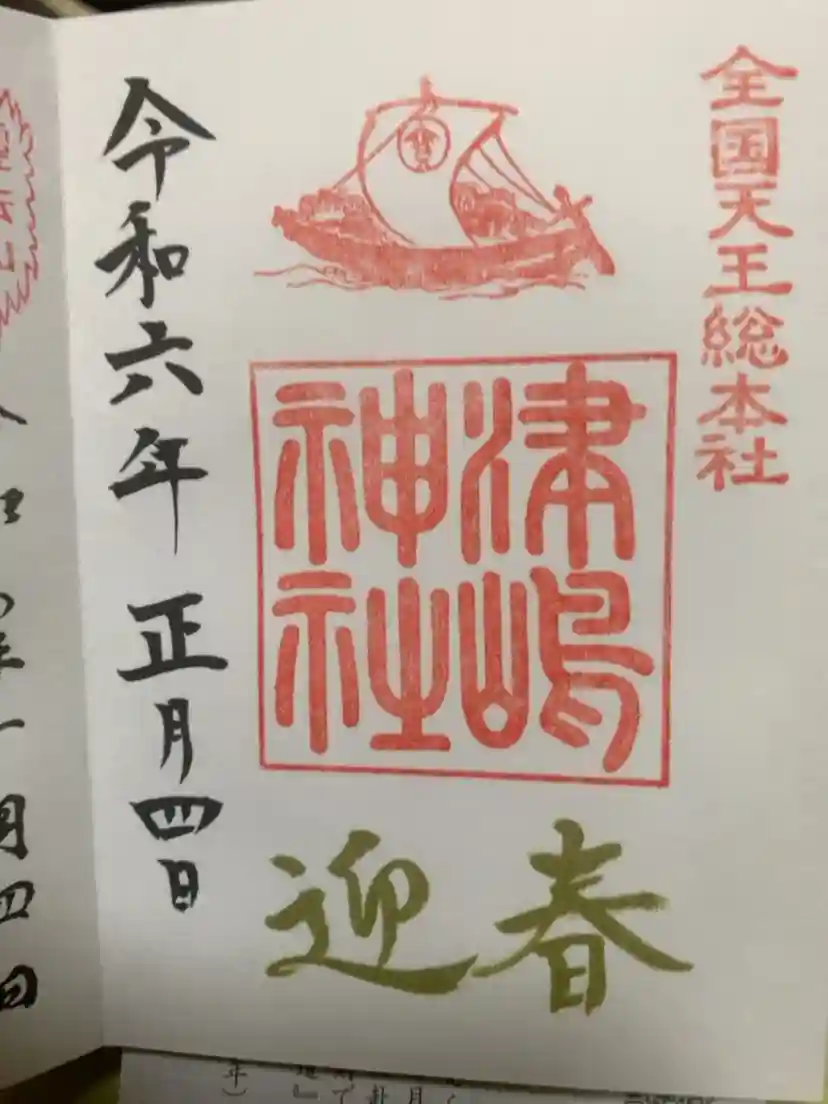 全国天王総本社
津嶋
神社
迎春
令和六年 正月四日
月四日
年）